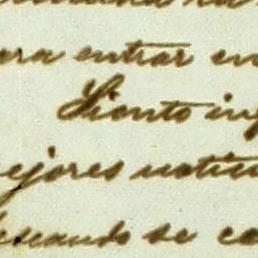 entrar en
Siento
mejores notici
deseando se co